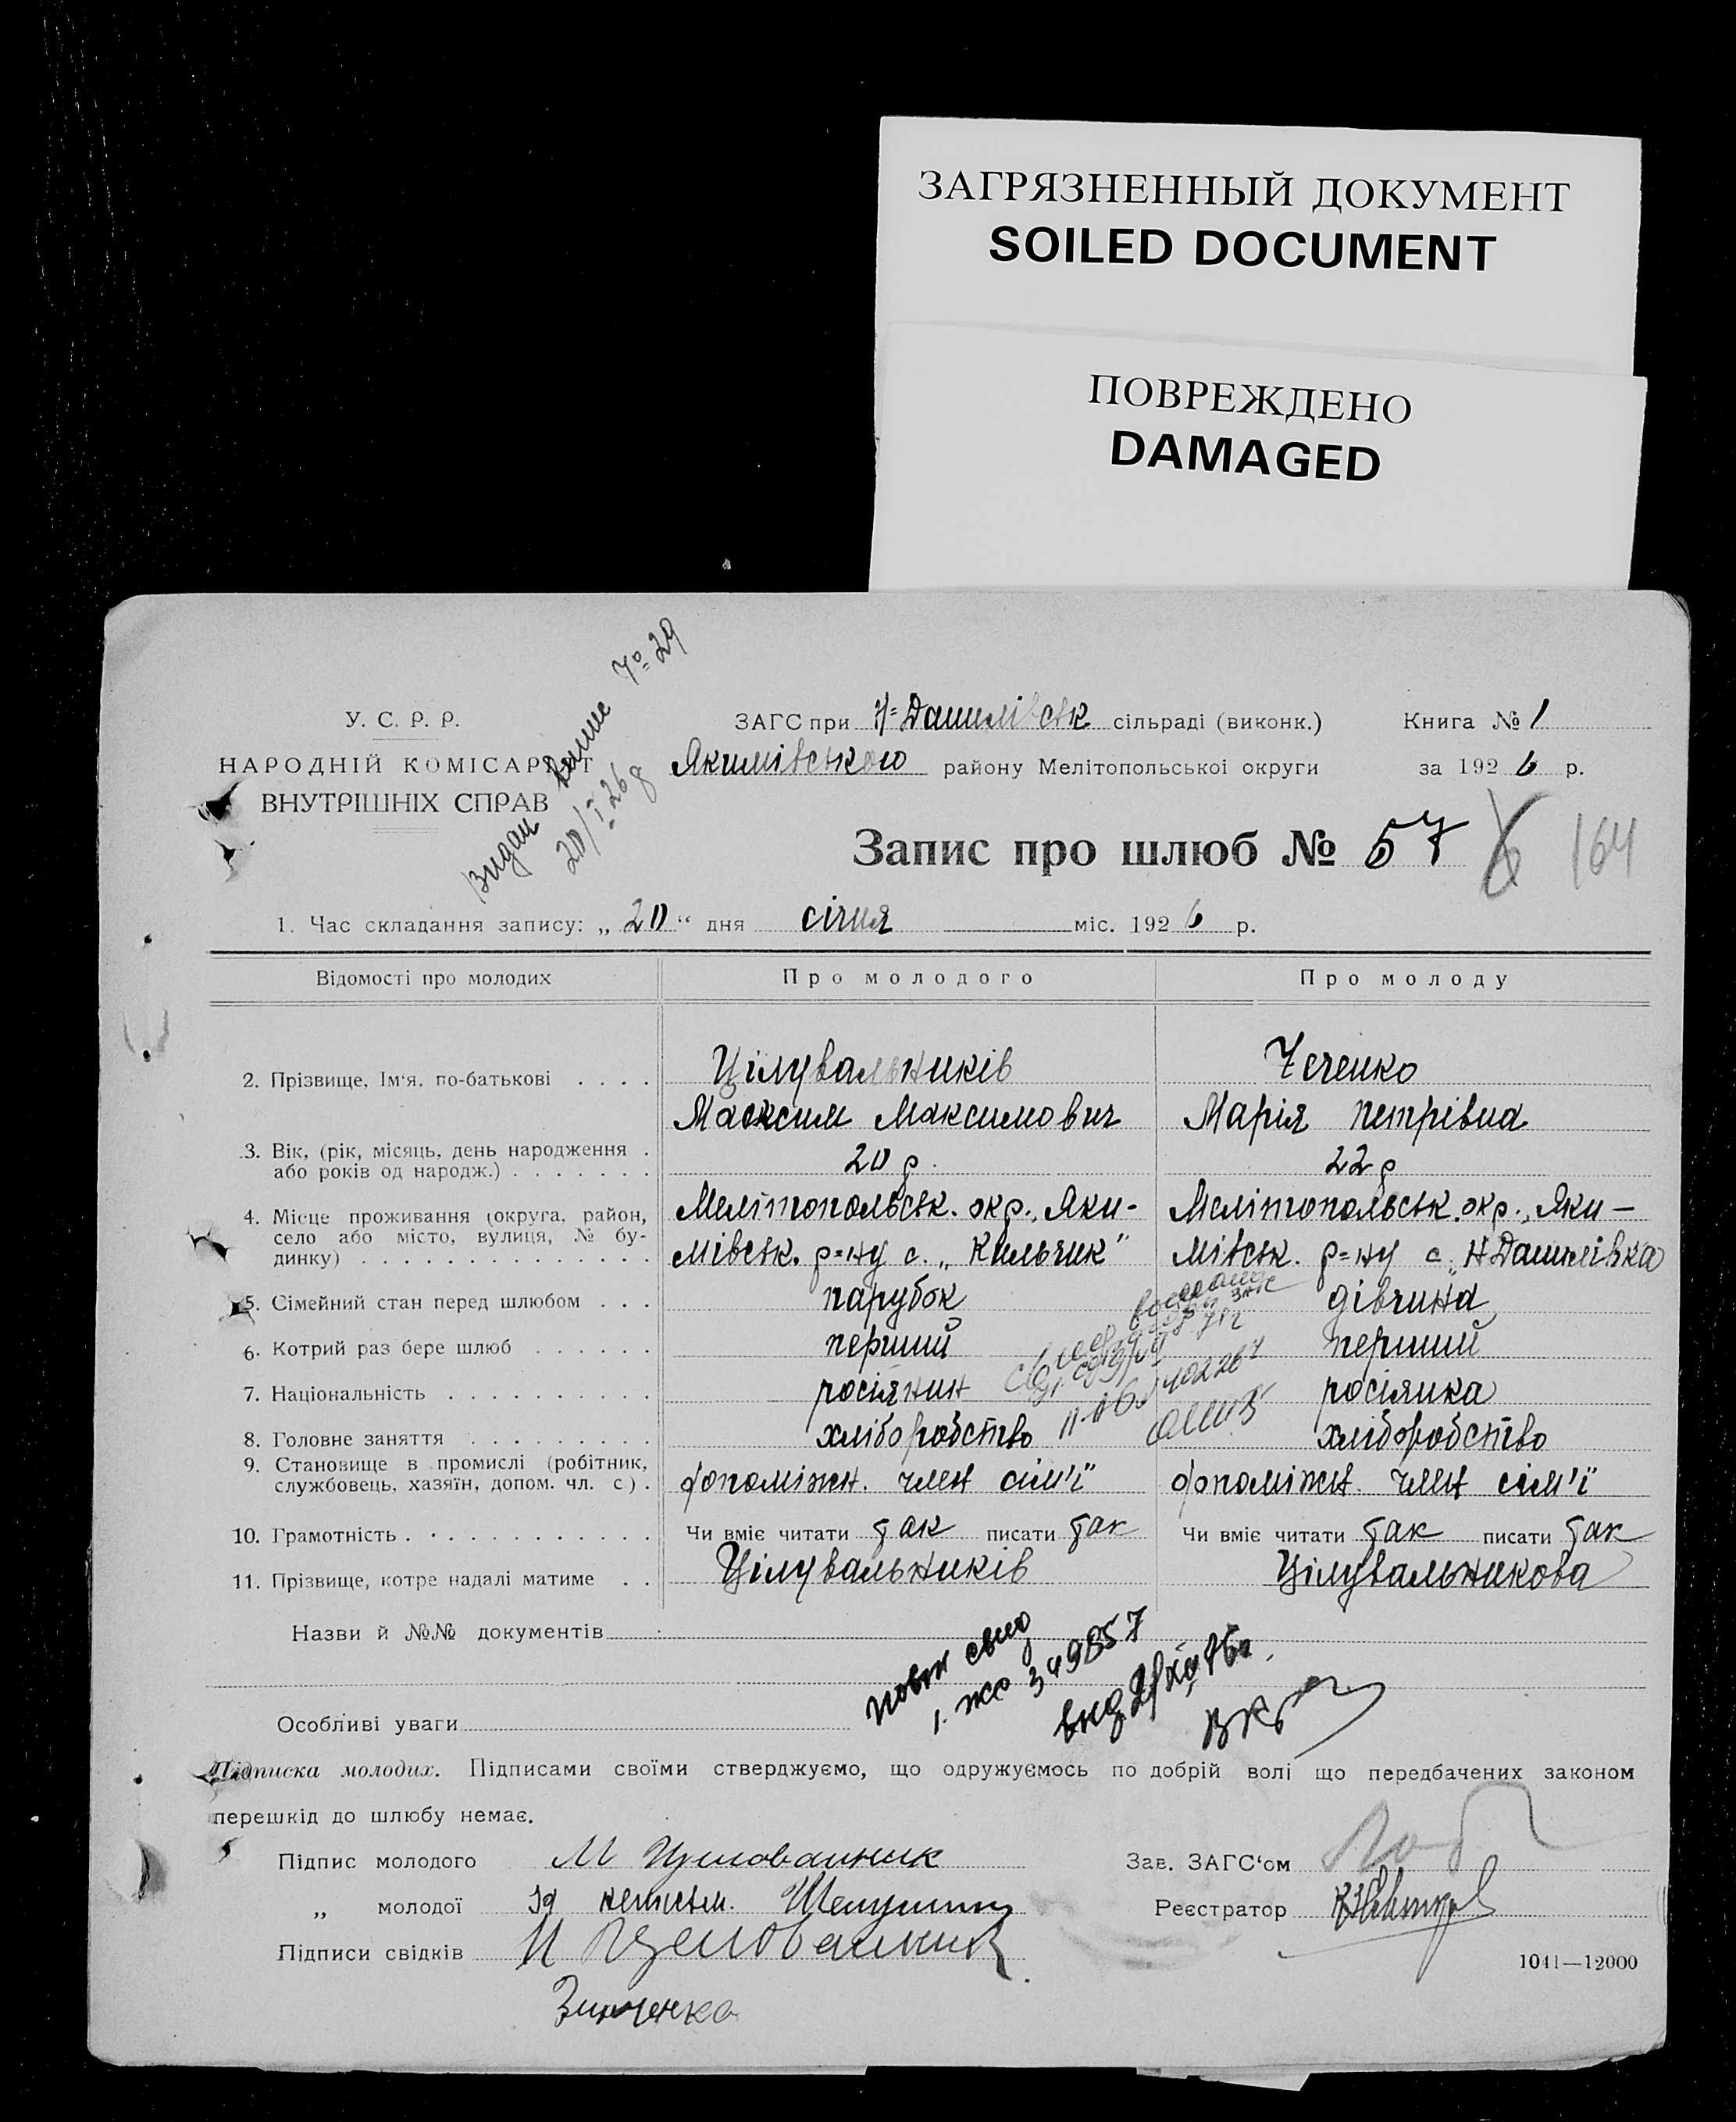 ЗАГРЯЗНЕННЫЙ ДОКУМЕНТ
SOILED DOCUMENT
ПОВРЕЖДЕНО
DAMAGED
У. С. Р. Р.
НАРОДНІЙ КОМІСАРІЯТ
ВНУТРІШНІХ СПРАВ
20/I 26 р
ЗАГС при Н=Данилівськ сільраді (виконк.) Книга № 1
Якимівського району Мелітопольської округи за 1926 р.
Запис про шлюб № 57 6 164
1. Час складання запису: „20“ дня січня міс. 1926 р.
Відомості про молодих Про молодого Про молоду
2. Прізвище, Ім'я, по-батькові . . . . Цілувальників Чеченко
Максим Максимович Марія Петрівна
3. Вік, (рік, місяць, день народження .
або років од народж.) . . . . . . . 20 р. 22 р
4. Місце проживання (округа, район, Мелітопольськ. окр., Яки- Мелітопольськ. окр., Яки-
село або місто, вулиця, № бу-
динку) . . . . . . . . . . . . . . . мівськ. р=ну с. „Кильчик" мівськ. р=ну с. Н Данилівка
5. Сімейний стан перед шлюбом . . . парубок дівчина
6. Котрий раз бере шлюб . . . . . . перший перший
7. Національність . . . . . . . . . . росіянин росіянка
8. Головне заняття . . . . . . . . . хліборобство хліборобство
9. Становище в промислі (робітник,
службовець, хазяїн, допом. чл. с) . допоміжн. член сім'ї допоміжн. член сім'ї
10. Грамотність . . . . . . . . . . . . Чи вміє читати так писати так Чи вміє читати так писати так
11. Прізвище, котре надалі матиме . . Цілувальників Цілувальникова
Назви й №№ документів
349857
Особливі уваги
Підписка молодих. Підписами своїми стверджуємо, що одружуємось по добрій волі що передбачених законом
перешкід до шлюбу немає.
Підпис молодого М Зав. ЗАГС'ом
„ молодої Реєстратор
Підписи свідків
1041—12000
Зинченко